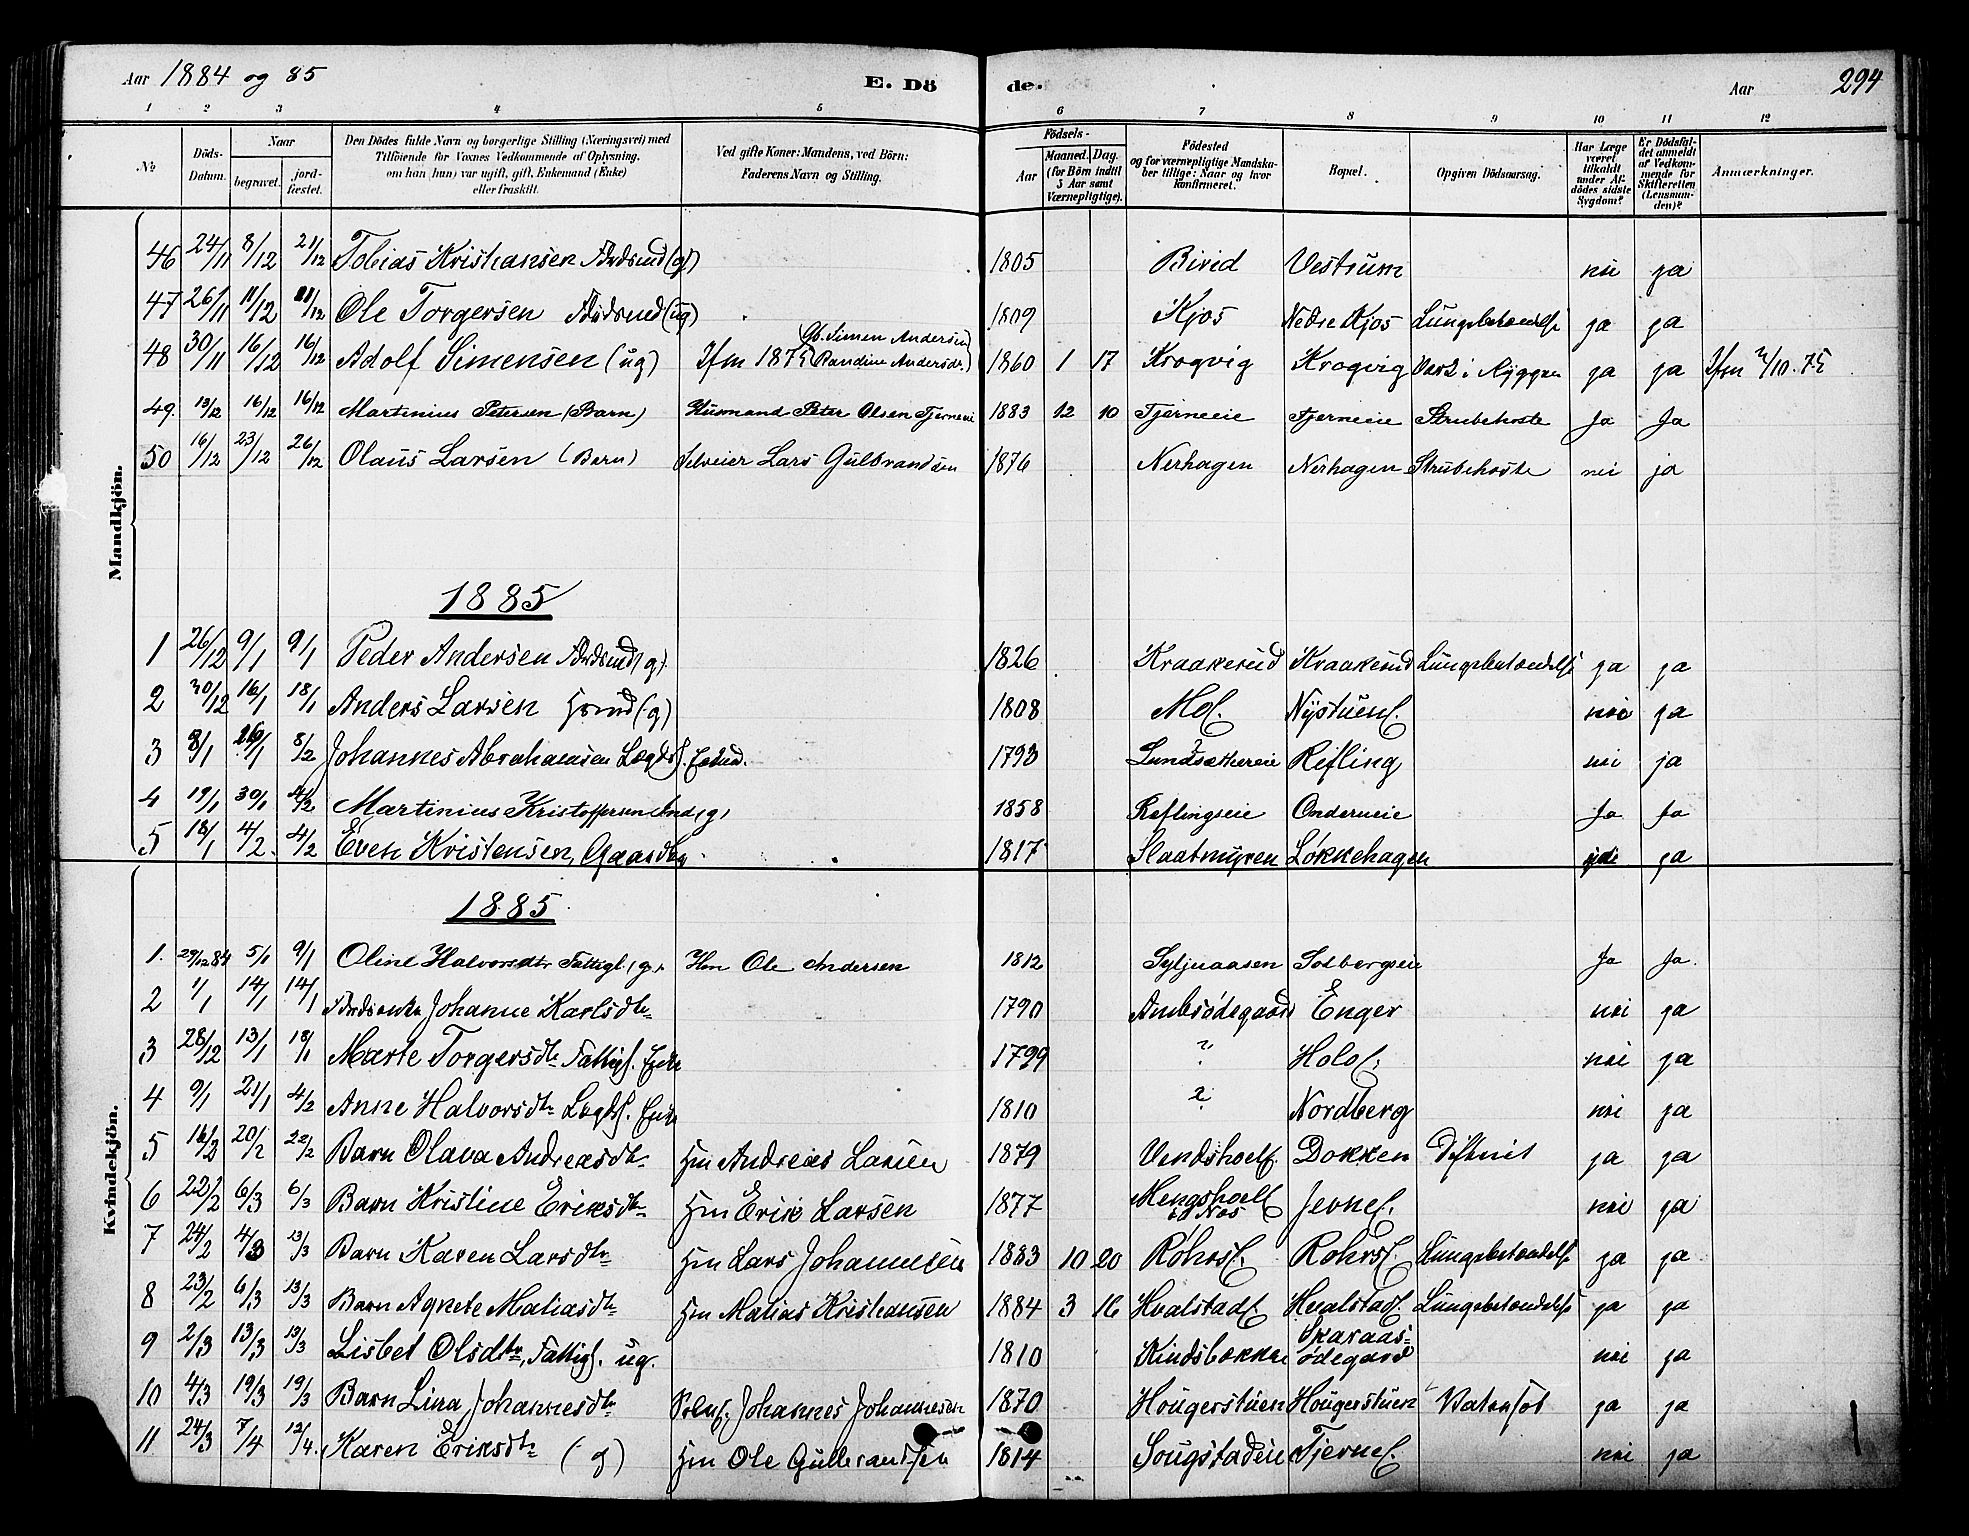 Aar 1884 og 85 E. Dö de. Aar 294
1 2 3 4 5 6 7 8 9 10 11 12
No Döds-Datum. Naar begravet. jord-fæstet. Den Dödes fulde Navn og borgerlige Stilling (Næringsvei) med Tilföiende for Voxnes Vedkommende af Oplysning, om han (hun) var ugift, gift, Enkemand (Enke) eller fraskilt. Ved gifte Koner: Mandens, ved Börn: Faderens Navn og Stilling. Födsels- Aar Maaned. Dag. (for Börn indtil 3 Aar samt Værnepligtige). Födested og for værnepligtige Mandskaber tillige: Naar og hvor konfirmeret. Bopæl. Opgiven Dödsaarsag. Har Læge været tilkaldt under Afdödes sidste Sygdom? Er Dödsfaldet anmeldt af Vedkommende for Skifteretten (Lensmanden)? Anmærkninger.
Mandkjön.
46 24/11 8/12 21/12 Tobias Kristiansen (g) 1805 Birid Vestrum nei ja
47 26/11 11/12 11/12 Ole Torgersen (ug) 1809 Kjos Nedre Kjos Lungebetændelse ja ja
48 30/11 16/12 16/12 Adolf Simensen (ug) Ifm 1875 (Gb. Simen Andersen Randine Andersdr.) 1860 1 17 Krogvig Krogvig Værk i Ryggen ja ja Ifm 2/10.75
49. 13/12 16/12 16/12 Martinius Petersen (Barn) Husmand Peter Olsen Tjerneeie 1883 12 10 Tjerneeie Tjerneeie Strubehoste Ja Ja
50 16/12 23/12 26/12 Olaus Larsen (Barn) Selveier Lars Gulbrandsen 1876 Nerhagen Nerhagen Strubehoste nei ja
1885
1 26/12 9/1 9/1 Peder Andersen (g). 1826 Kraakerud Kraakerud Lungebetændelse ja ja
2 30/12 16/1 18/1 Anders Larsen (g) 1808 Mo Nystuen nei ja
3 8/1 8/2 Johannes Abrahamsen Lægdsl. Enkem. 1793 Lundsætereie Refling nei ja
4 19/1 30/1 4/2 Martinius Kristoffersen (g) 1858 Reflingseie Onderneie Ja Ja
5 18/1 4/2. 4/2 Even Kristensen, Gaardbr. 1817 Slaatmyren Løkkehagen ja
Kvindekjön.
1885
1. 29/12 84 5/1 9/1 Oline Halvorsdtr Fattigl. (g) Hm Ole Andersen 1812 Syljuaasen Solbergseie Ja Ja.
2 1/1 14/1 14/1 Johanne Karlsdtr 1790 Ambsødegaard Enger nei ja
3 28/12 13/1 18/1 Marte Torgersdtr Fattigl. Enke 1799 ? Hole nei ja
4 9/1 21/1 4/2 Anne Halvorsdtr Lægdsl. Enke 1810 ? Nordberg nei ja
5 16/2 20/2 22/2 Barn Olava Andreasdtr Hm Andreas Larsen 1879 Dokken Difterit ja ja
6 22/2 6/3 6/3 Barn Kristine Eriksdtr Hm Erik Larsen 1877 Mengshoel Nes Jevne nei ja
7 24/2 4/3 13/3 Barn Karen Larsdtr Hm Lars Johannesen 1883 10 20 Røhrs Rohrs Lungebetændelse ja ja
8 23/2 6/3 13/3 Barn Agnete Matiasdtr Hm Matias Kristiansen 1884 3 16 Hvalstad Hvalstad Lungebetændelse ja ja
9 2/3 13/3 13/3 Lisbet Olsdtr, Fattigl. ug. 1810 Kindsbækken Skaraas=ødegaard nei ja
10 4/3 19/3 19/3 Barn Lina Johannesdtr Johannes Johannesen 1870 Hougerstuen Hougerstuen Vatersot ja ja
11 24/3 7/4 12/4. Karen Eriksdtr (g) Hm Ole Gulbrandsen 1814 Sougstadeie Tjerne nei ja